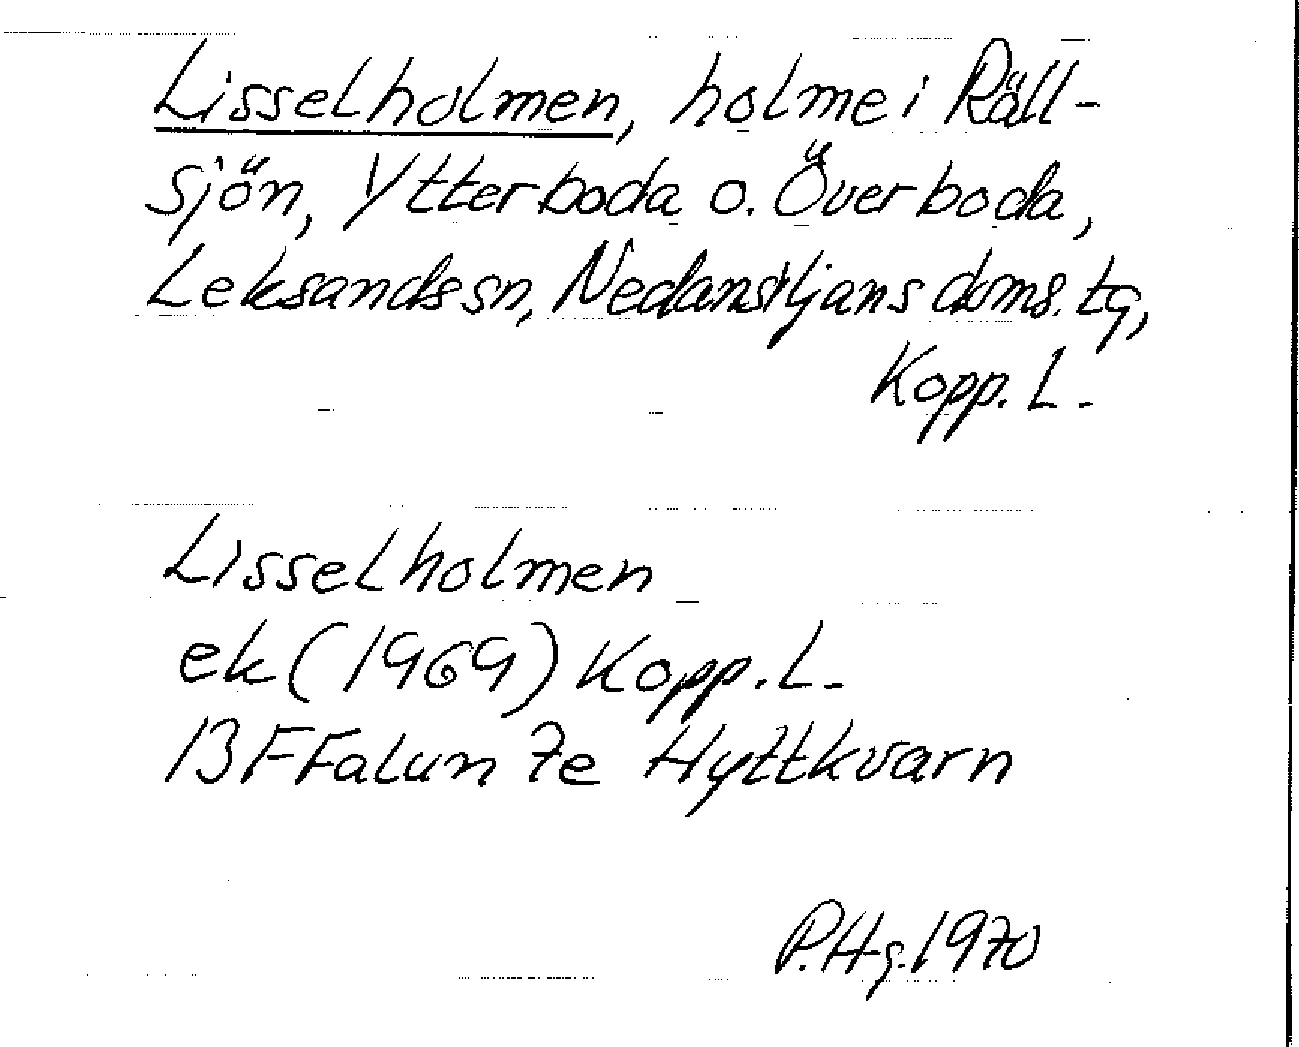 Lisselholmen, holme i Räll-
sjön, Ytterboda o. Överboda,
Leksands sn, Nedansiljans doms. tg,
Kopp. L.
Lisselholmen
ek (1969) Kopp. L.
13 F Falun 7e Hyttkvarn
P.Hg. 1970